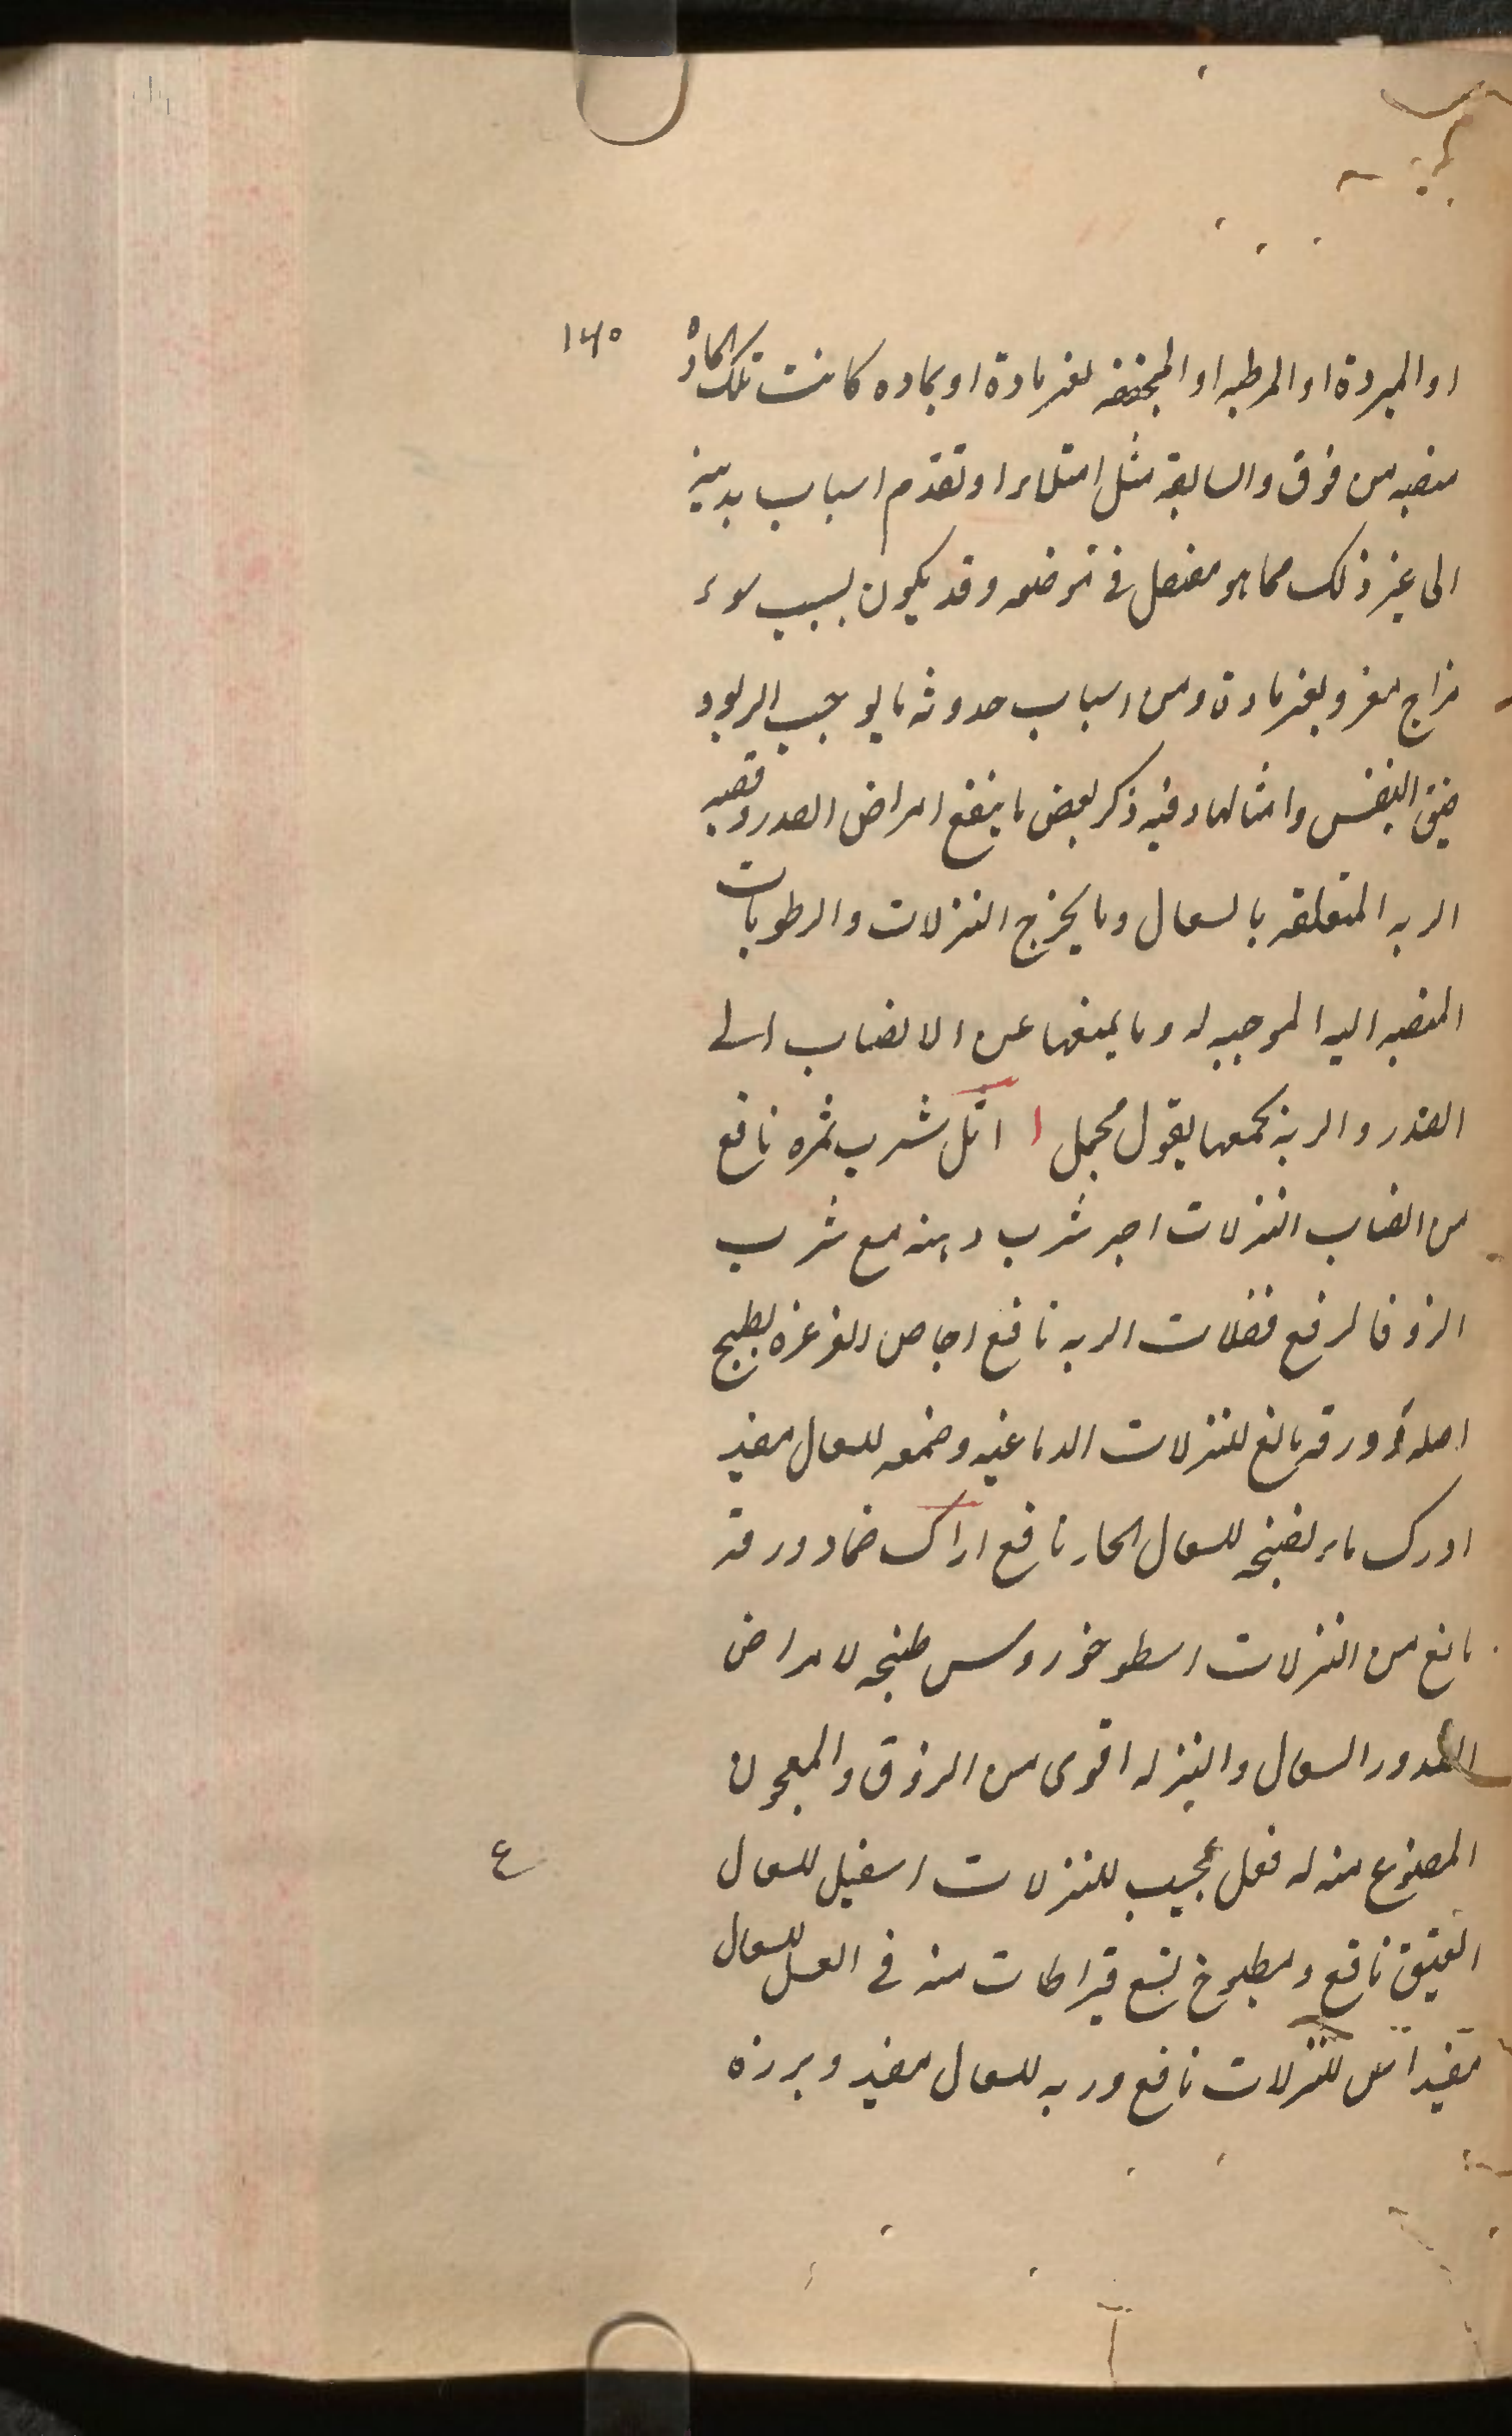 ۱۴۵
او المبردة او المرطبه او المجففه لغیر مادة او بماده کانت تلک المادة
منصبه من فوق والسابقه مثل امتلاء او تقدم اسباب بدنیه
الی غیر ذلک مما هو مفصل فی موضعه وقد یکون بسبب سوء
مزاج مفرد بغیر مادة ومن اسباب حدوثه ما یوجب الربو و
ضیق النفس وامثالها وفیه ذکر بعض ما ینفع امراض الصدر وقصبه
الریه المتعلقه بالسعال وما یخرج النزلات والرطوبات
المنصبه الیه الموجبه له وما یمنعها عن الانصباب الی
الصدر والریة بجمعها بقول مجمل اثل شرب ثمره نافع
من انصباب النزلات شرب دهنه مع شرب
الزوفا لرفع فضلات الریه نافع اجاص الغرغره بطبیخ
اصله وورقه مانع للنزلات الدماغیه وصمغه للسعال مفید
ادرک ماء نضیجه للسعال الحار نافع اراک ضماد ورقه
مانع من النزلات اسطوخودوس طبیخه لامراض
الصدور السعال والنزله اقوی من الزوفا والمعجون
المصنوع منه له فعل عجیب للنزلات اسقیل للسعال
ع
العتیق نافع ومطبوخ تسع قیراطات منه فی العسل للسعال
مفید اس للنزلات نافع وربه للسعال مفید وبرزه